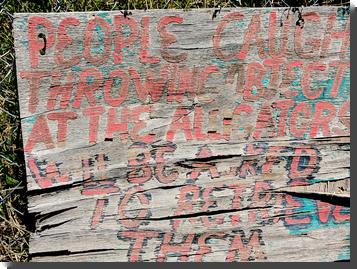 PEOPLE CAUGH
THROWING OBJECT
AT THE ALLIGATORS
WILL BE ASKED
TO RETRIEVE
THEM